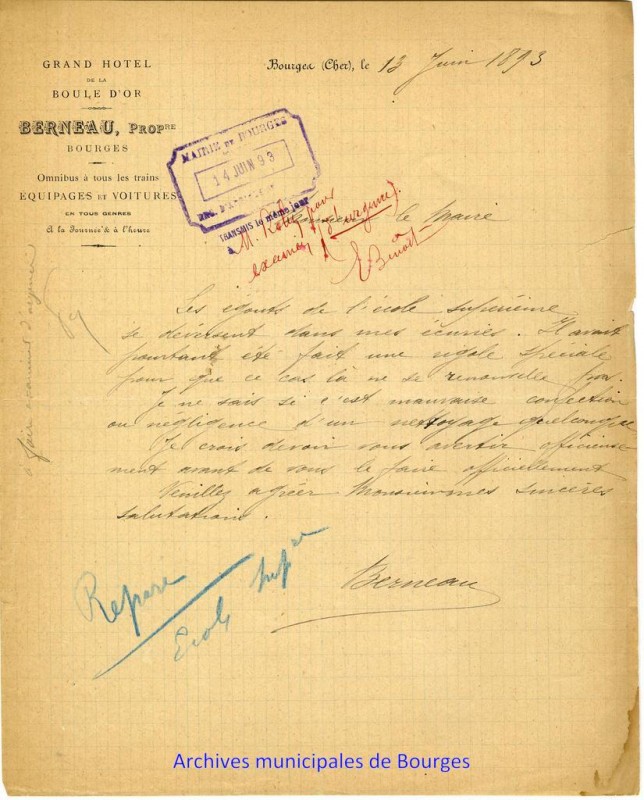 GRAND HOTEL
DE LA
BOULE D'OR
BERNEAU, PROPRE
BOURGES
Omnibus à tous les trains
EQUIPAGES ET VOITURES
EN TOUS GENRES
A la Journée & à l'heure
Bourges (Cher), le 13 Juin 1893
MAIRIE DE BOURGES
14 JUIN 93
TRANSMIS le même jour
à M. pour
examen (d'urgence).
E Benoit
Monsieur le Maire
Les égouts de l'école supérieure
se déversent dans mes écuries. Il avait
pourtant été fait une rigole spéciale
pour que ce cas là ne se renouvelle pas.
Je ne sais si c'est mauvaise confection
ou négligence d'un nettoyage quelconque
Je crois devoir vous avertir officieuse
ment avant de vous le faire officiellement
Veuillez agréer Monsieur mes sincères
salutations.
Berneau
faire examiner d'urgence
Repare
Ecole supre
Archives municipales de Bourges